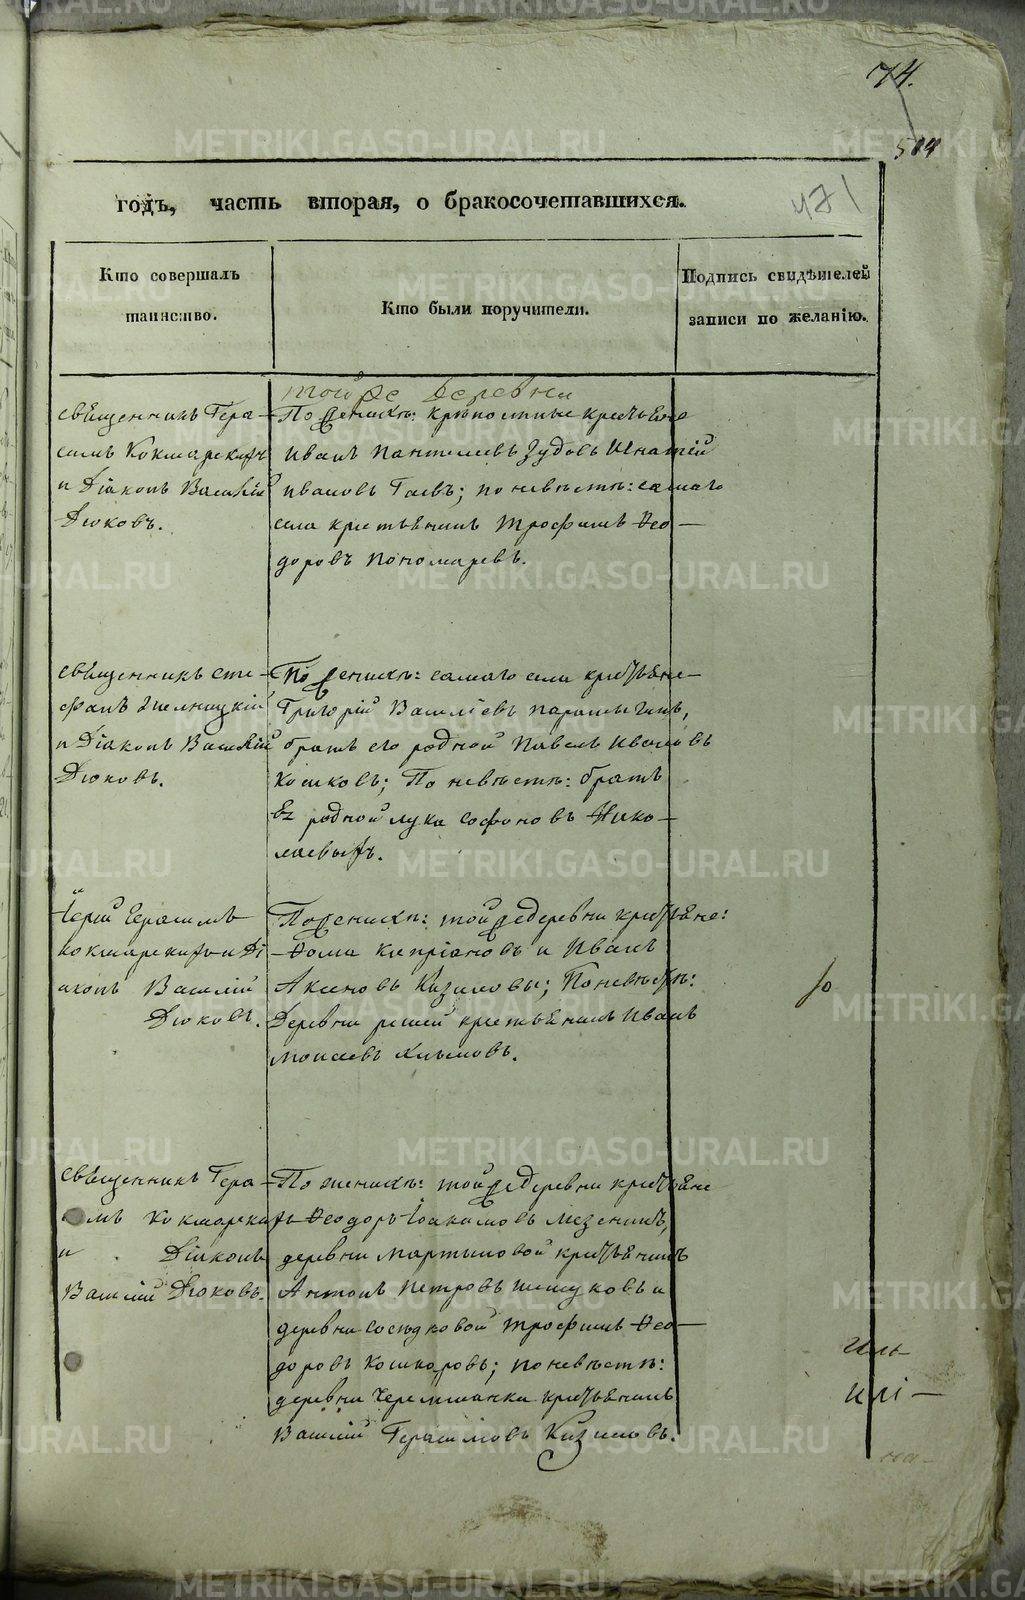 74.
504
471
годъ, часть вторая, о бракосочетавшихся.
Кто совершалъ
таинство.
Кто были поручители.
Подпись свидѣтелей
записи по желанію.
тойже деревни
священникъ Гера-
симъ Кокшарскихъ
и Діаконъ Василій
Дюковъ.
По женихѣ: крѣпостные крестьяне
Иванъ Пантелеевъ Зудовъ Игнатій
Ивановъ Гаевъ; по невѣстѣ: самаго
села крестьянинъ Трофимъ Ѳео-
доровъ Пономаревъ.
священникъ Сте-
фанъ
и Діаконъ Василій
Дюковъ.
По женихѣ: самаго села крестьяне-
Григорій Василіевъ
братъ его родной Павелъ Ивановъ
По невѣстѣ: братъ
ея родной Лука Софоновъ Нико-
лаевыхъ.
Іерей Герасимъ
Кокшарскихъ и Ді
аконъ Василій
Дюковъ.
По женихѣ: тойже деревни крестьяне:
Ѳома Кипріановъ и Иванъ
Аксеновъ Кизиловы; По невѣстѣ:
Деревни крестьянинъ Иванъ
Моисеевъ
священникъ Гера-
симъ Кокшарскихъ
и Діаконъ
Василій Дюковъ.
По женихѣ: тойже деревни крестьяне
Ѳеодоръ Іоакимовъ Мезенинъ,
деревни Мартыновой крестьянинъ
Антонъ Петровъ и
деревни Сосѣдковой Трофимъ Ѳео-
доровъ Кошкаровъ; по невѣстѣ:
деревни Черемшанки крестьянинъ
Василій Герасимовъ Кизиловъ.
METRIKI.GASO-URAL.RU